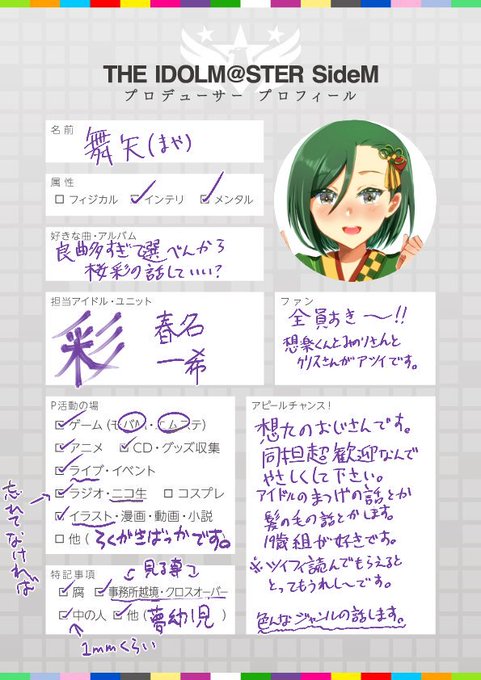 THE IDOLM@STER SideM
プロデューサー プロフィール
名前
舞矢(まや)
属性
フィジカル インテリ メンタル
好きな曲・アルバム
良曲多すぎて選べんから
桜彩の話していい?
担当アイドル・ユニット
彩 春名
一希
ファン
全員おき〜!!
想楽くんとみのりさんと
クリスさんがアツイです。
P活動の場
ゲーム(モバM・エムステ)
アニメ CD・グッズ収集
ライブ・イベント
ラジオ・ニコ生 コスプレ
イラスト・漫画・動画・小説
他(らくがきばっかです。)
忘れてなければ
アピールチャンス!
想九のおじさんです。
同担超歓迎なんで
やさしくして下さい。
アイドルのまつげの話とか
髪の毛の話とかします。
19歳組が好きです。
※ツイフィ読んでもらえると
とってもうれしーです。
色んなジャンルの話します。
特記事項
見る専
腐 事務所越境・クロスオーバー
中の人 他(夢幼児)
1mmくらい